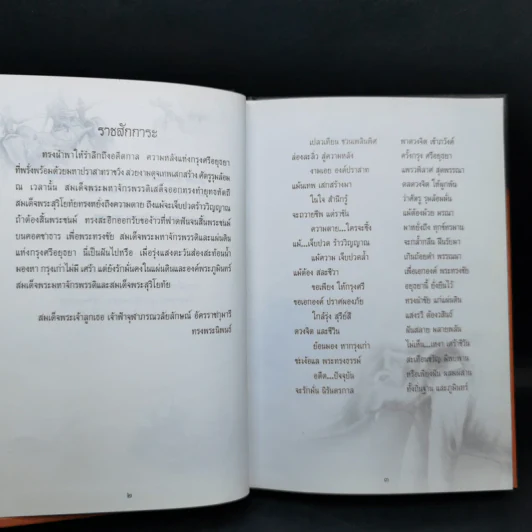 ราชสักการะ
ทรงนำพาให้รำลึกถึงอดีตกาล ความหลังแห่งกรุงศรีอยุธยา
ที่พรั่งพร้อมด้วยมหาปราสาทราชวัง สวยงามดุจเทพเสกสร้าง ศัตรูรุมล้อม
ณ เวลานั้น สมเด็จพระมหาจักรพรรดิเสด็จออกทรงทำยุทธหัตถี
สมเด็จพระสุริโยทัยทรงหยั่งถึงความตาย ถึงแม้จะเจ็บปวดร้าววิญญาณ
ถ้าต้องสิ้นพระชนม์ ทรงสะอึกออกรับของ้าวที่ฟาดฟันจนสิ้นพระชนม์
บนคอคชาธาร เพื่อพระทรงชัย สมเด็จพระมหาจักรพรรดิและแผ่นดิน
แห่งกรุงศรีอยุธยา นี่เป็นฝันไปหรือ เมื่อรุ่งแสงตะวันส่องสะท้อนน้ำ
มองหา กรุงเก่าไม่มี เศร้า แต่ยังรักมั่นคงในแผ่นดินและองค์พระภูมินทร์
สมเด็จพระมหาจักรพรรดิและสมเด็จพระสุริโยทัย
สมเด็จพระเจ้าลูกเธอ เจ้าฟ้าจุฬาภรณวลัยลักษณ์ อัครราชกุมารี
ทรงพระนิพนธ์
๒
เปลวเทียน ชวนเพลินพิศ พาดวงจิต เข้าภวังค์
ล่องละลิ่ว สู่ความหลัง ครั้งกรุง ศรีอยุธยา
งามเอย องค์ปราสาท แพรวพิลาศ สุดพรรณา
แม้นเทพ เสกสร้างมา ดลดวงจิต ให้ผูกพัน
ในใจ สำนึกรู้ ว่าศัตรู รุมล้อมนั่น
จะถวายชีพ แด่ราชัน แม้ต้องม้วย มรณา
ความตาย...ใครจะซึ้ง มาหยั่งถึง ทุกข์ทรมาน
แม้...เจ็บปวด ร้าววิญญาณ จะกล้ำกลืน ฝืนรับมา
แม้ความ เจ็บปวดล้ำ เกินถ้อยคำ พรรณนา
แม้ต้อง สละชีวา เพื่อเอกองค์ พระทรงชัย
ขอเพียง ให้กรุงศรี อยุธยานี้ ยั่งยืนไว้
ขอเอกองค์ ปราศผองภัย ทรงนำชัย แก่แผ่นดิน
ใกล้รุ่ง สุริย์สี แสงระวี ต้องวสินธุ์
ดวงจิต และชีวิน ฉันสลาย หลายพลัน
ย้อนมอง หากรุงเก่า ไม่เห็น...เหงา เศร้าชีวัน
อดีต...ปัจจุบัน หรือเพียงฝัน ผสมผสาน
จะรักมั่น นิรันดรกาล ทั้งถิ่นฐาน และภูมินทร์
๓